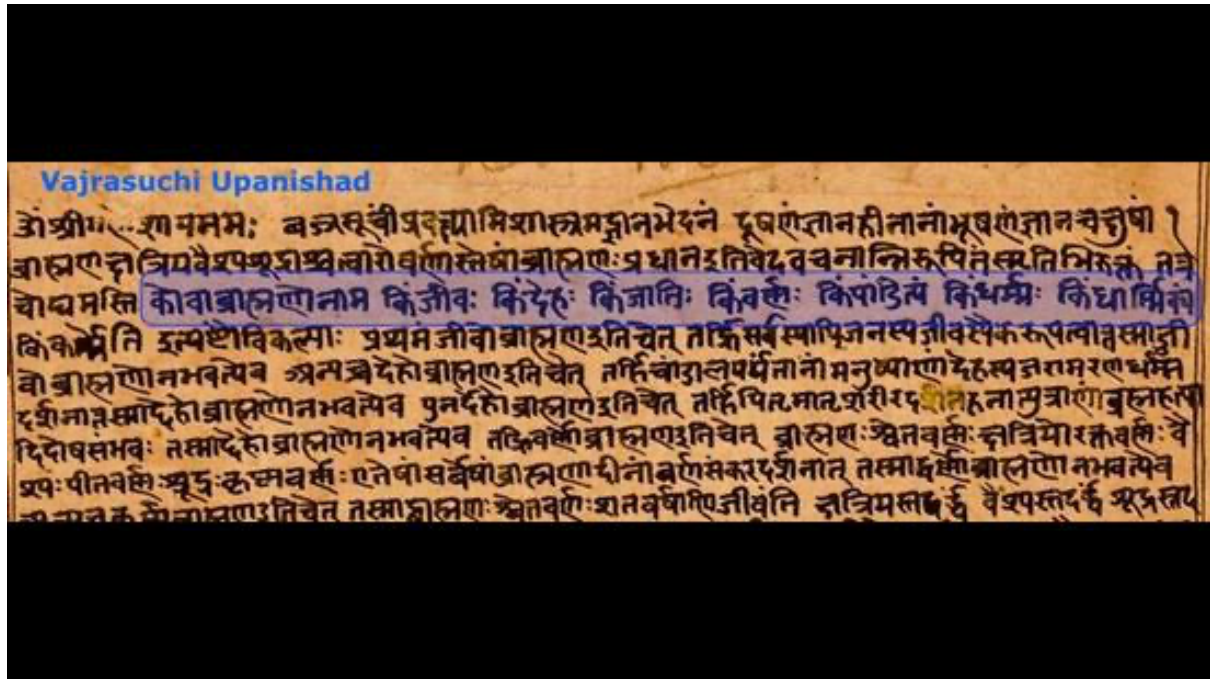 Vajrasuchi Upanishad
ॐश्रीग शायनमः वज्रसूचीप्रवक्ष्यामिशास्त्रमज्ञानभेदनं दूषणंज्ञानहीनानांभूषणंज्ञानचक्षुषां १
ब्राह्मणक्षत्रियवैश्यशूद्राश्चत्वारोवर्णास्तेषांब्राह्मणःप्रधानइतिवेदवचनान्निरूपितंस्मृतिभिरुक्तं तत्र
चोद्यमस्ति कोवाब्राह्मणोनाम किंजीवः किंदेहः किंजातिः किंवर्णः किंपांडित्यं किंधर्म्मः किंधार्म्मिकत्वं
इत्यष्टौविकल्पाः प्रथमंजीवोब्राह्मणइतिचेत् तर्हिसर्वस्यापिजनस्यजीवस्यैकरूपत्वात्तस्माज्जी
वोब्राह्मणोनभवत्येव अन्यच्चदेहोब्राह्मणइतिचेत् तर्हिचांडालपर्यंतानांमनुष्याणांदेहस्यजरामरणधर्म्म
दर्शनात्तस्माद्देहोब्राह्मणोनभवत्येव पुनर्देहोब्राह्मणइतिचेत् तर्हिपितृमातृशरीरदहनात्पुत्राणांब्रह्महत्या
दिदोषसंभवः तस्माद्देहोब्राह्मणोनभवत्येव तर्हिवर्णोब्राह्मणइतिचेत् ब्राह्मणःश्वेतवर्णः क्षत्रियोरक्तवर्णः वै
श्यःपीतवर्णः शूद्रःकृष्णवर्णः एतेषांसर्वेषांब्राह्मणादीनांवर्णसंकरदर्शनात् तस्माद्वर्णोब्राह्मणोनभवत्येव
तस्माद्ब्राह्मणःश्वेतवर्णःशतवर्षाणिजीवति क्षत्रियस्तदर्द्धं वैश्यस्तदर्द्धं शूद्रस्तद